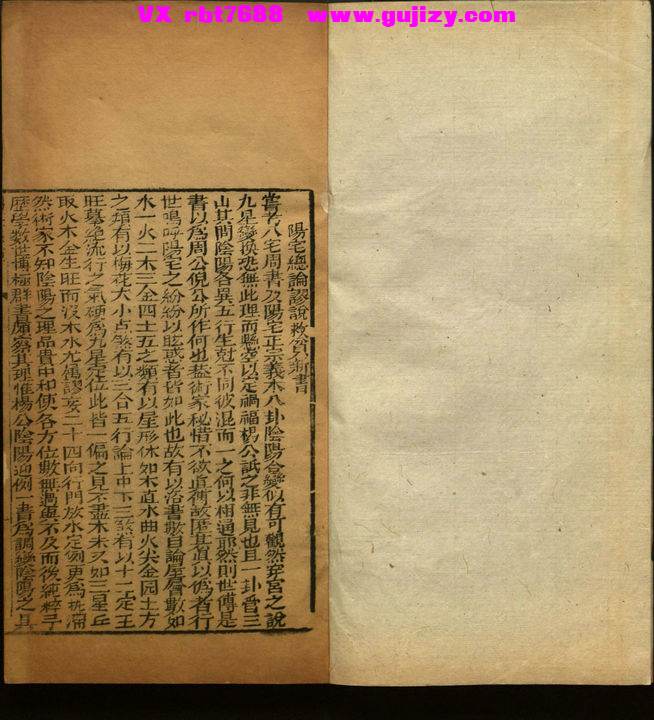 VX rbt7688 www.gujizy.com
陽宅總論謬說救貧新書
嘗考八宅周書及陽宅正宗義本八卦陰陽合變似有可觀然穿宮之說
九星變換恐無此理而懸空以定禍福楊公詆之非無見也且一卦管三
山其間陰陽各異五行生尅不同彼混而一之何以相通爾然則世傳是
書以為周公倪公所作何也葢術家秘惜不欲直衝故匿其真以偽者行
世嗚呼陽宅之紛紛以眩惑者皆如此也故有以洛書數自論房層數如
水一火二木三金四土五之類有以星形休如木直水曲火尖金园土方
之類有以梅花大小点煞有以三合五行論上中下三煞有以十二定王
旺墓絕流行之氣硬為九星定位此皆一偏之見不盡木末又如三星丘
取火木金生旺而沒木水尤屬謬妄二十四向行門放水定例更為
然術家不知陰陽之理品貴中和使各方位數無過與不及而後純粹
歷學數世博極群書屢察其理惟楊公陰陽 例一書為調燮陰陽之具